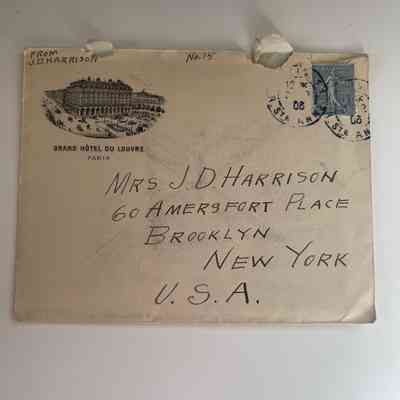 FROM
J.D. HARRISON
No. 15
GRAND HÔTEL DU LOUVRE
PARIS
MRS. J D. HARRISON
60 AMERSFORT PLACE
BROOKLYN
NEW YORK
U. S. A.
06
06